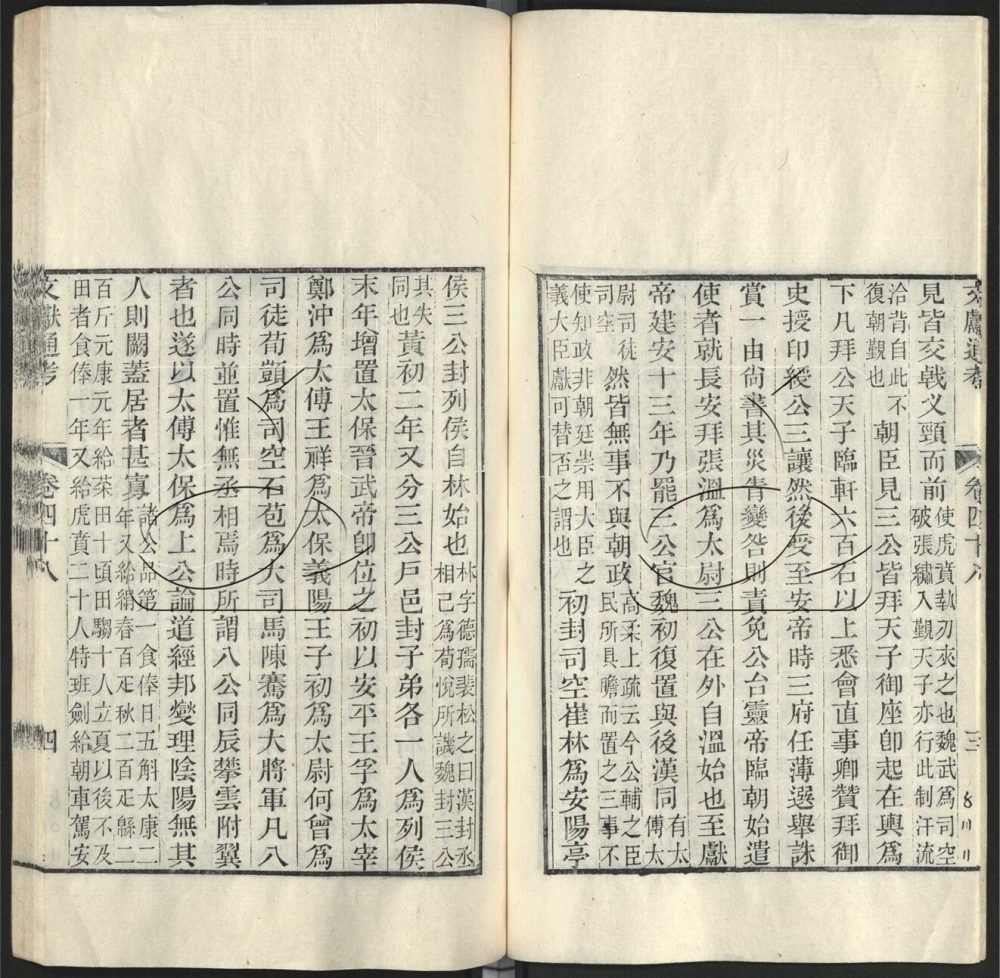 文獻通考 卷四十八 三
見皆交戟叉頸而前使虎賁執刃夾之也魏武爲司空破張繡入覲天子亦行此制汗流
洽背自此不復朝覲也朝臣見三公皆拜天子御座卽起在輿爲
下凡拜公天子臨軒六百石以上悉會直事卿贊拜御
史授印綬公三讓然後受至安帝時三府任薄選舉誅
賞一由尙書其災眚變咎則責免公台靈帝臨朝始遣
使者就長安拜張溫爲太尉三公在外自溫始也至獻
帝建安十三年乃罷三公官魏初復置與後漢同有太傅太
尉司徒司空然皆無事不與朝政高柔上疏云今公輔之臣民所具瞻而置之三事不
使知政非朝廷崇用大臣之義大臣獻可替否之謂也初封司空崔林爲安陽亭
侯三公封列侯自林始也林字德儒裴松之曰漢封丞相己爲荀悅所譏魏封三公
其失同也黃初二年又分三公戶邑封子弟各一人爲列侯
末年增置太保晉武帝卽位之初以安平王孚爲太宰
鄭沖爲太傅王祥爲太保義陽王子初爲太尉何曾爲
司徒荀顗爲司空石苞爲大司馬陳騫爲大將軍凡八
公同時並置惟無丞相焉時所謂八公同辰攀雲附翼
者也遂以太傅太保爲上公論道經邦燮理陰陽無其
人則闕蓋居者甚寡諸公品第一食俸日五斛太康二年又給絹春百疋秋二百疋緜二
百斤元康元年給菜田十頃田騶十人立夏以後不及田者食俸一年又給虎賁二十人特班劍給朝車駕安
文獻通考 卷四十八 四